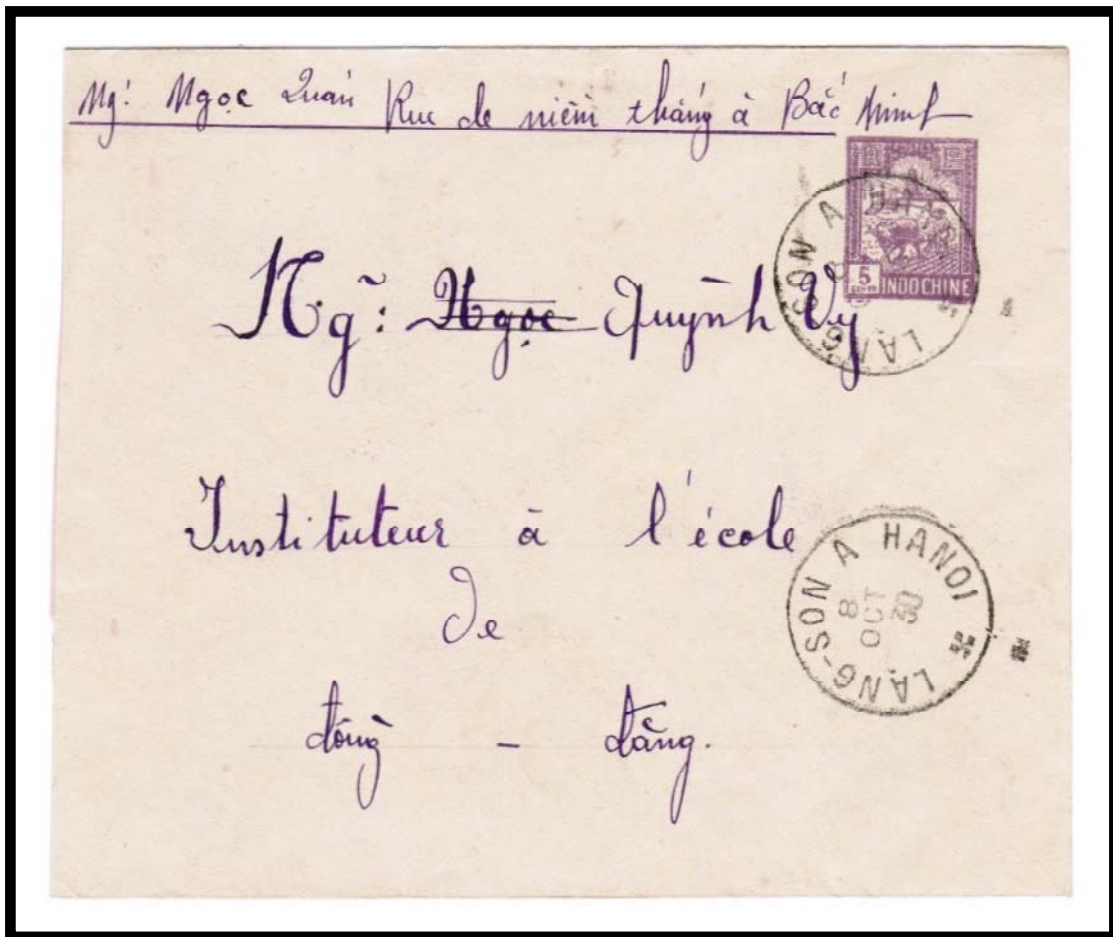 Ng: Ngọc Quán Rue de niềm tháng à Bắc Ninh
5
CENTS
INDOCHINE
LANG-SON A HANOI
Ng: Ngọc Quỳnh Vy
Instituteur à l'école
de
LANG-SON A HANOI
8
OCT
30
đông - đăng.